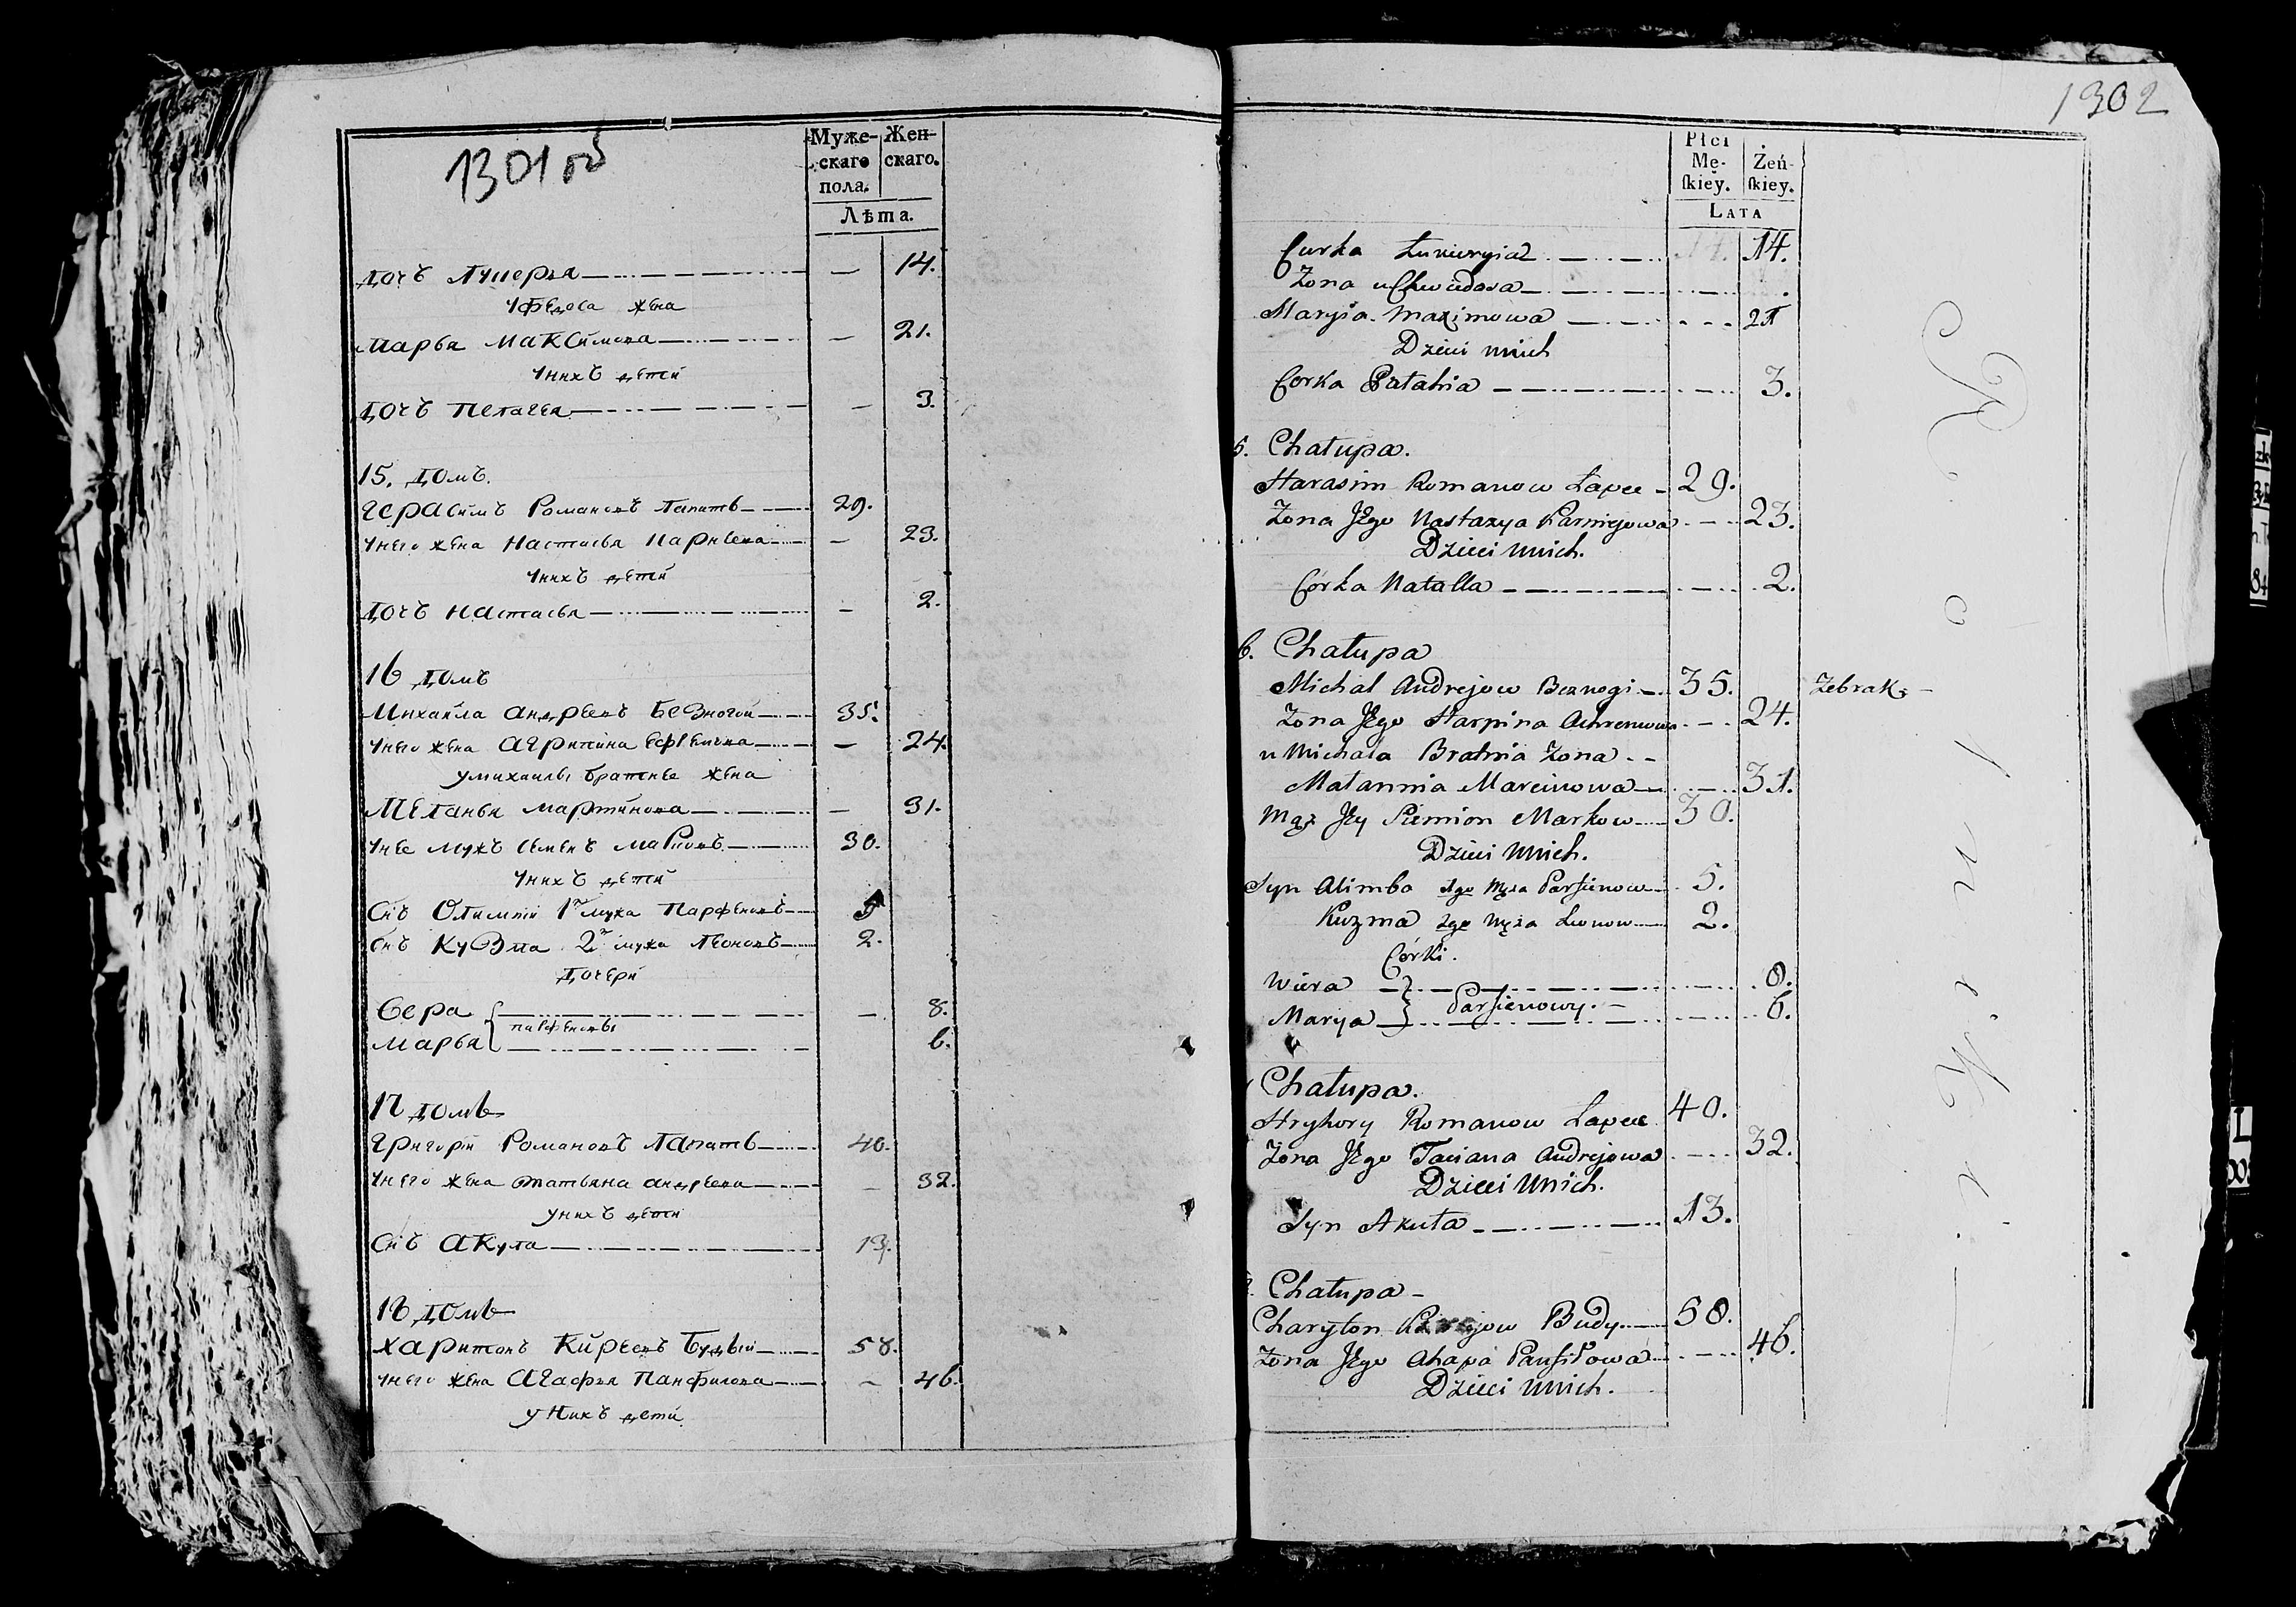 1301 об
Муже-скаго пола. Жен-скаго.
Лѣта.
дочъ Лукерья — 14.
у Федоса жена
Марья Максимова — 21.
у нихъ детей
дочъ Пелагея — 3.
15. домъ.
Герасимъ Романовъ Лапать 29.
у него жена Настасья Парнеева — 23.
у нихъ детей
дочъ Настасья — 2.
16 домъ
Михайла Андреевъ Безногой 35.
у него жена Агрипина Ефремова — 24.
у Михайлы братнее жена
Меланья Мартинова — 31.
у нее мужъ Семенъ Марковъ 30.
у нихъ детей
Снъ Олимпий 1го мужа Парфеновъ 5
снъ Кузма 2го мужа Леоновъ 2.
дочери
Вера — 8.
Парфеновы
Марья 6.
17 домъ
Григорий Романовъ Лапать 40.
у него жена татьяна андреева — 32.
у нихъ дети
Снъ Акула 13.
18 домъ
Харитонъ Киреевъ Будый 58.
у него жена Агафья Панфилова — 46.
у Нихъ дети
1302
Płci Mę-ſkiey. Żeń-ſkiey.
LATA
Curka Łukieryia 14.
Żona u Chwiedosa
Maryia Maximowa 21
Dzieci u nich
Corka Patahia 3.
5. Chałupa.
Harasim Romanow Łapec 29.
Żona Jego Nastazya Parniejowa 23.
Dzieci u nich.
Córka Natalla 2.
6. Chałupa
Michał Andrejow Beznogi 35. Żebrak
Żona Jego Harpina Achremowa 24.
u Michała Bratnia Żona
Małannia Marcinowa 31.
Mąż Jey Siemion Markow 30.
Dzieci u nich.
Syn Alimbo 1go Męża Parfienow 5.
Kuzma 2go Męża Lwonow 2.
Córki.
Wiera 8.
Parfienowy.
Marya 6.
Chałupa.
Hryhory Romanow Łapec 40.
Żona Jego Taciana Andrejowa 32.
Dzieci u nich.
Syn Akuła 13.
Chałupa
Charyton Budy 58.
Żona Jego Ahapa Panfiłowa 46.
Dzieci u nich.
Rolniki